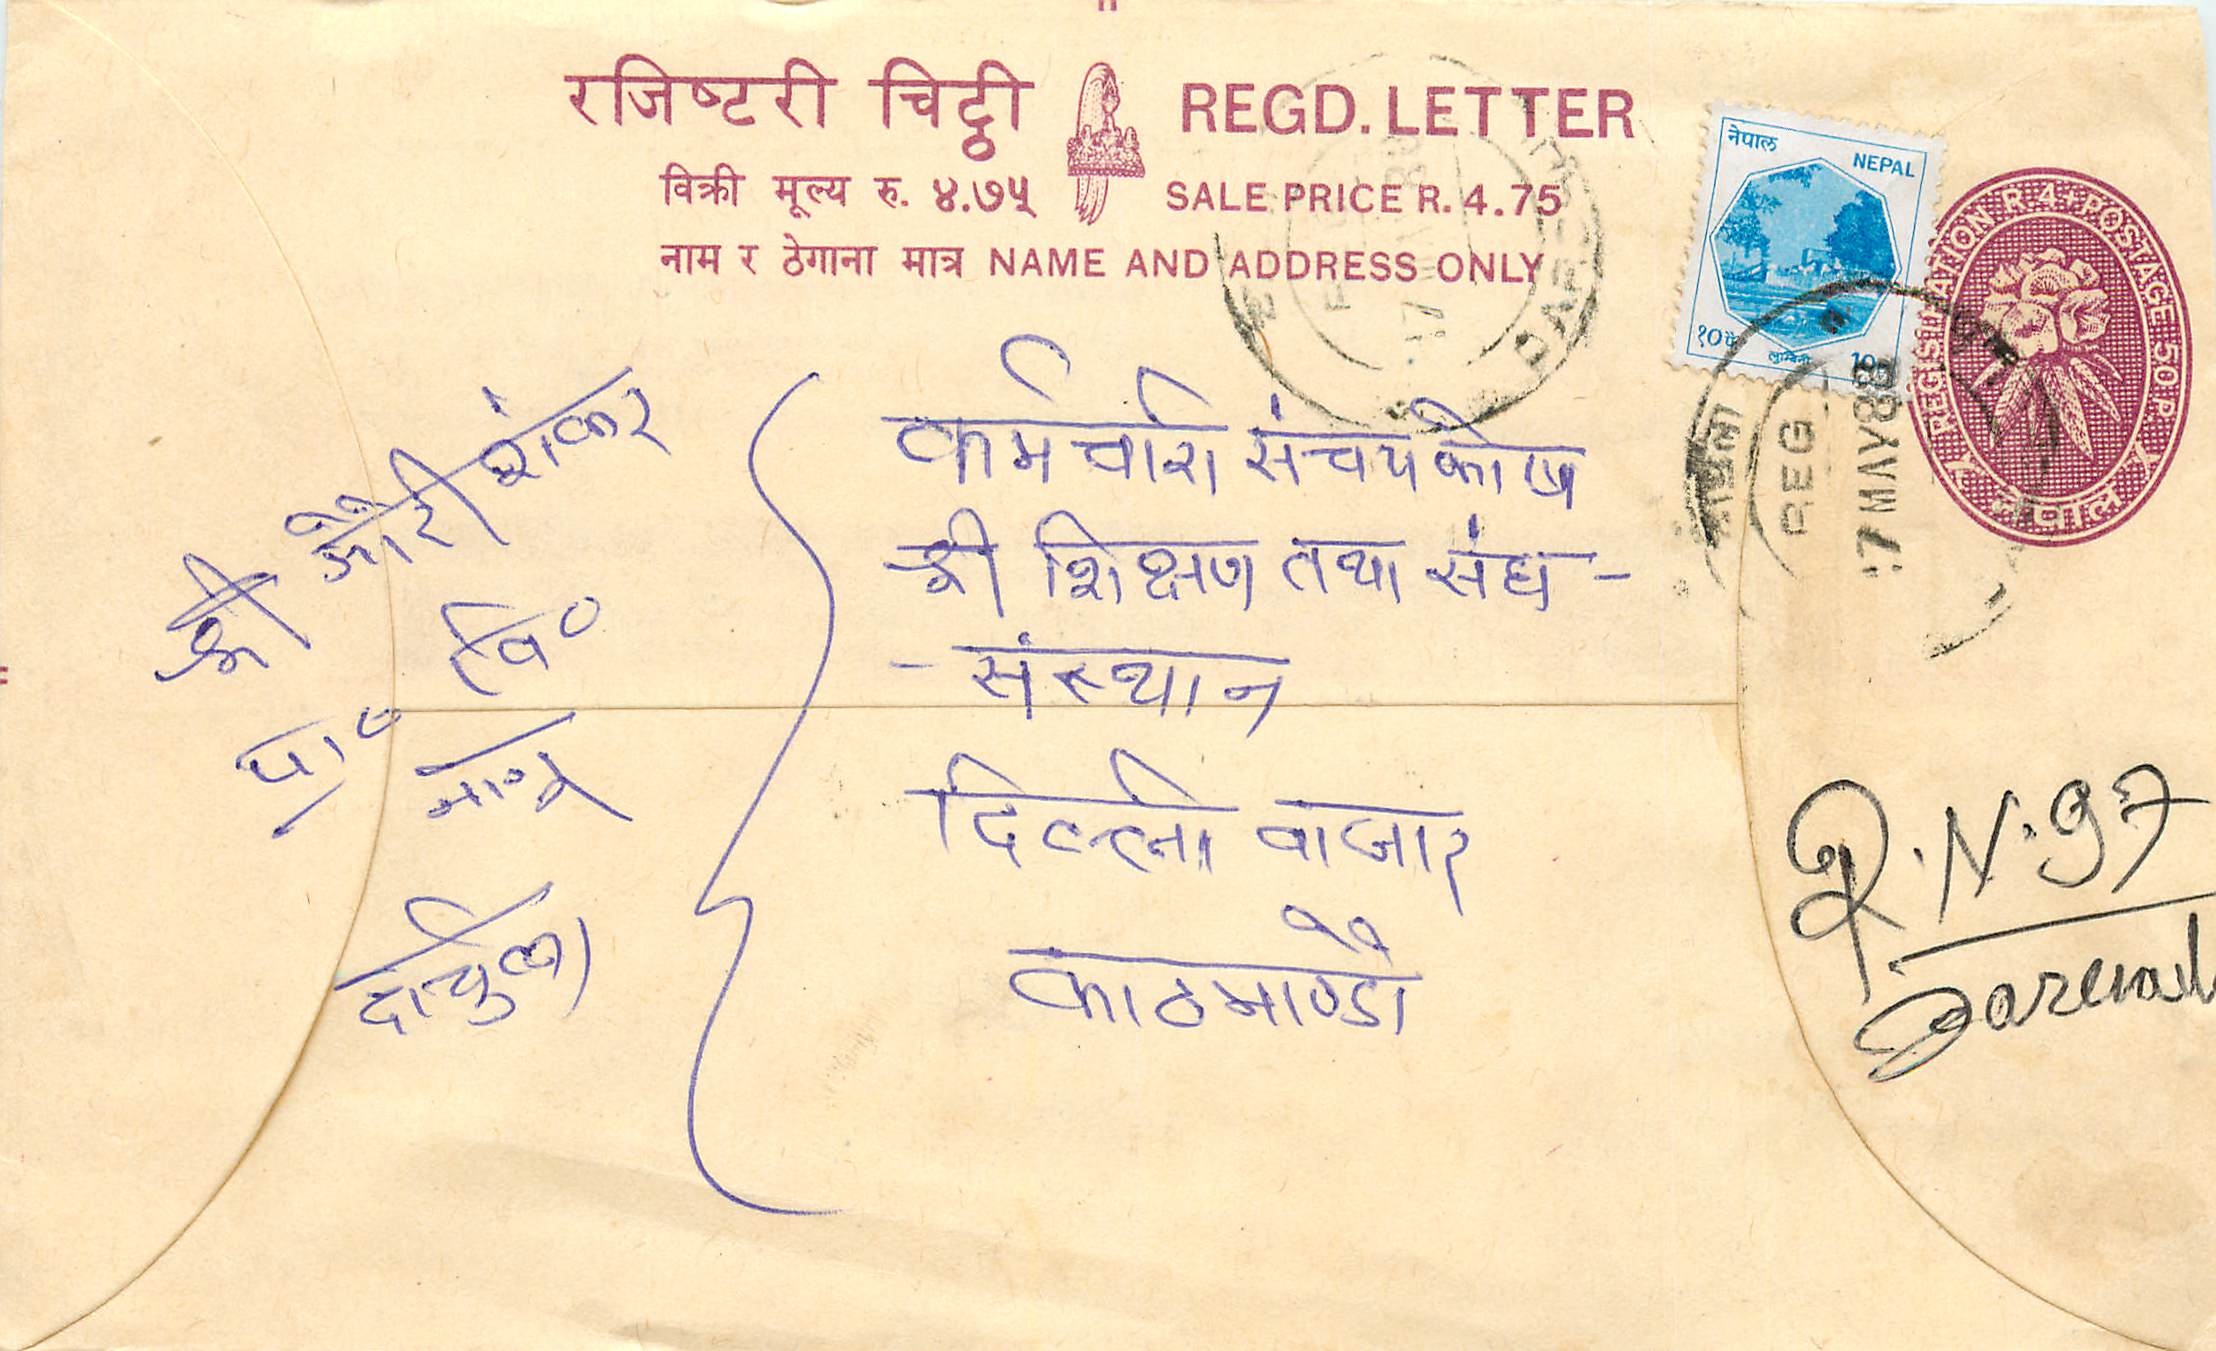 रजिष्टरी चिट्ठी REGD. LETTER
विक्री मूल्य रु. ४.७५ SALE PRICE R. 4.75
नाम र ठेगाना मात्र NAME AND ADDRESS ONLY
नेपाल NEPAL
१०पै लुम्बिनी 10
REGISTRATION R.4+POSTAGE 50 P.
नेपाल
REG
17 MAY 88
श्री गौरीशंकर
वि०
मा०
दार्चुला
कर्मचारी संचयकोष
श्री शिक्षण तथा संघ -
- संस्थान
दिल्ली बाजार
काठमाण्डौ
R.N.97